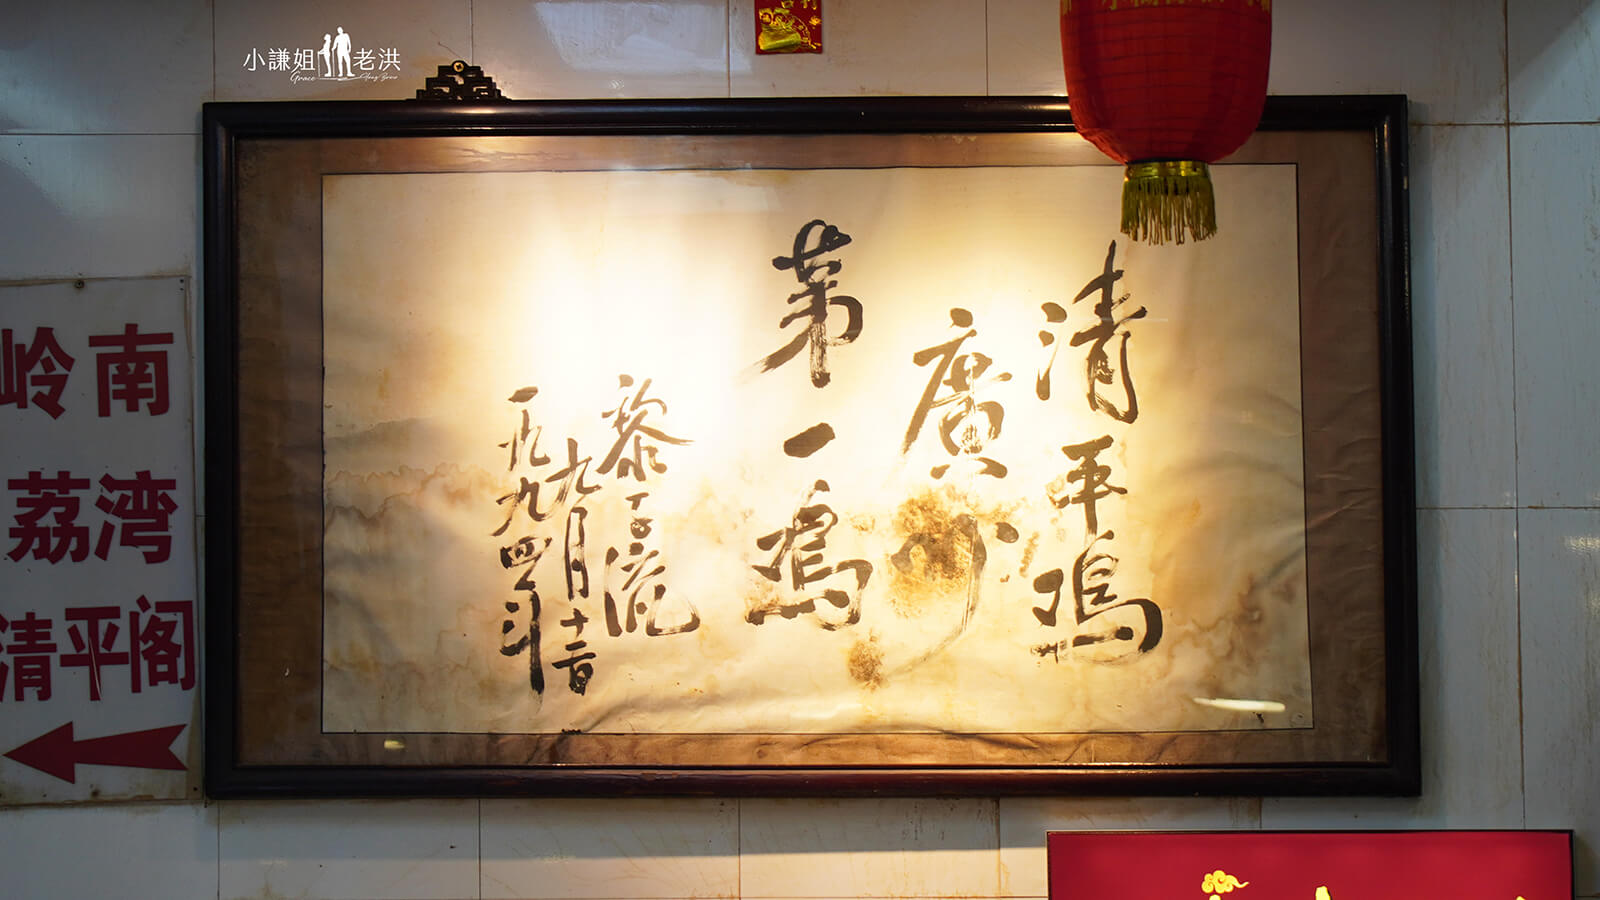 小謙姐 老洪
Grace
清平鸡
廣州
第一鸡
黎子流
一九九四年
九月十二日
岭南
荔湾
清平阁